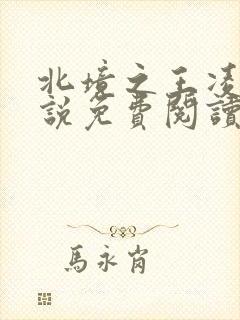 北境之王凌
說免費閱讀
馬永肖